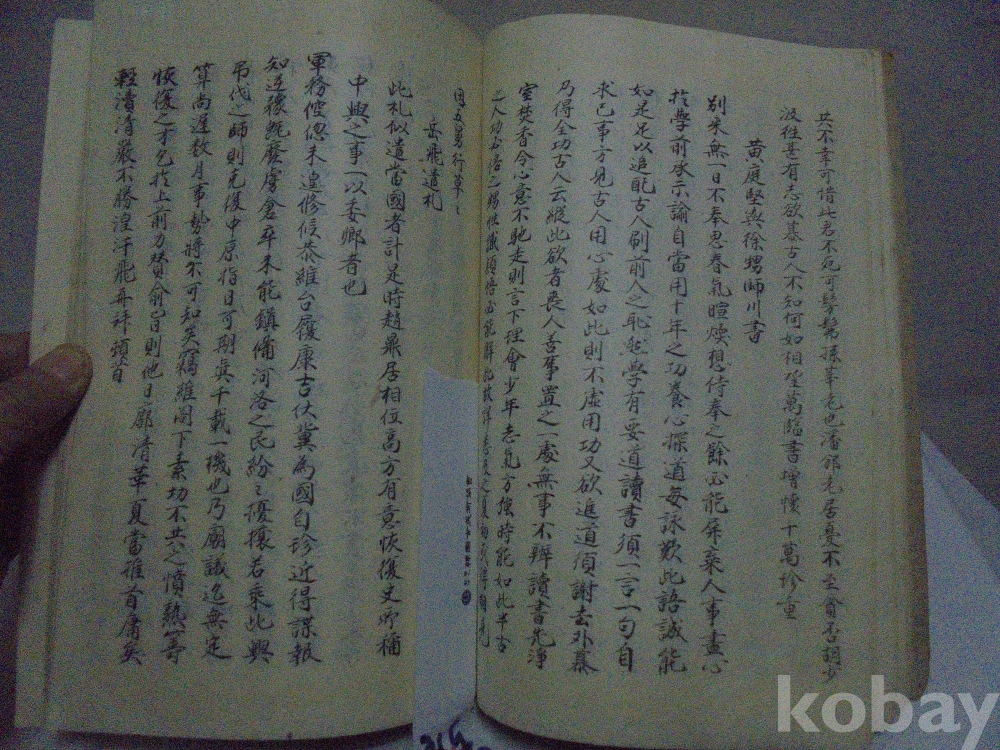 共不幸可惜此君不死可髣髴孫莘老也潘邠老居憂不至貧否胡少
汲往甚有志欲慕古人不知何如相望萬臨書增懷千萬珍重
黄庭堅與徐甥師川書
別來無一日不奉思春氣暄煖想侍奉之餘必能屏棄人事盡心
於學前承示諭自當用十年之功養心探道每詠歎此語誠能
如是足以追配古人刷前人之恥然學有要道讀書須一言一句自
求己事方見古人用心處如此則不虛用功又欲進道須謝去外慕
乃得全功古人云縱此欲者喪人善事置之一處無事不辨讀書先淨
室焚香令心意不馳走則言下理會少年志氣方強時能如此半古
之人功必
因五舅行草之
岳飛遺札
此札似遺當國者計是時趙鼎居相位高方有意恢復史所稱
中興之事一以委卿者也
軍務倥傯未遑修候恭維台履康吉伏冀為國自珍近得諜報
知逆豫既廢虜倉卒未能鎮備河洛之民紛々擾攘若乘此興
弔伐之師則克復中原指日可期真千載一機也乃廟議迄無定
算尚遲數月事勢將不可知矣竊維閣下素切不共之憤熟籌
恢復之才乞於上前力贊俞旨則他日廓清華夏當推首庸矣
輕瀆清嚴不勝惶汗飛再拜頓首
kobay